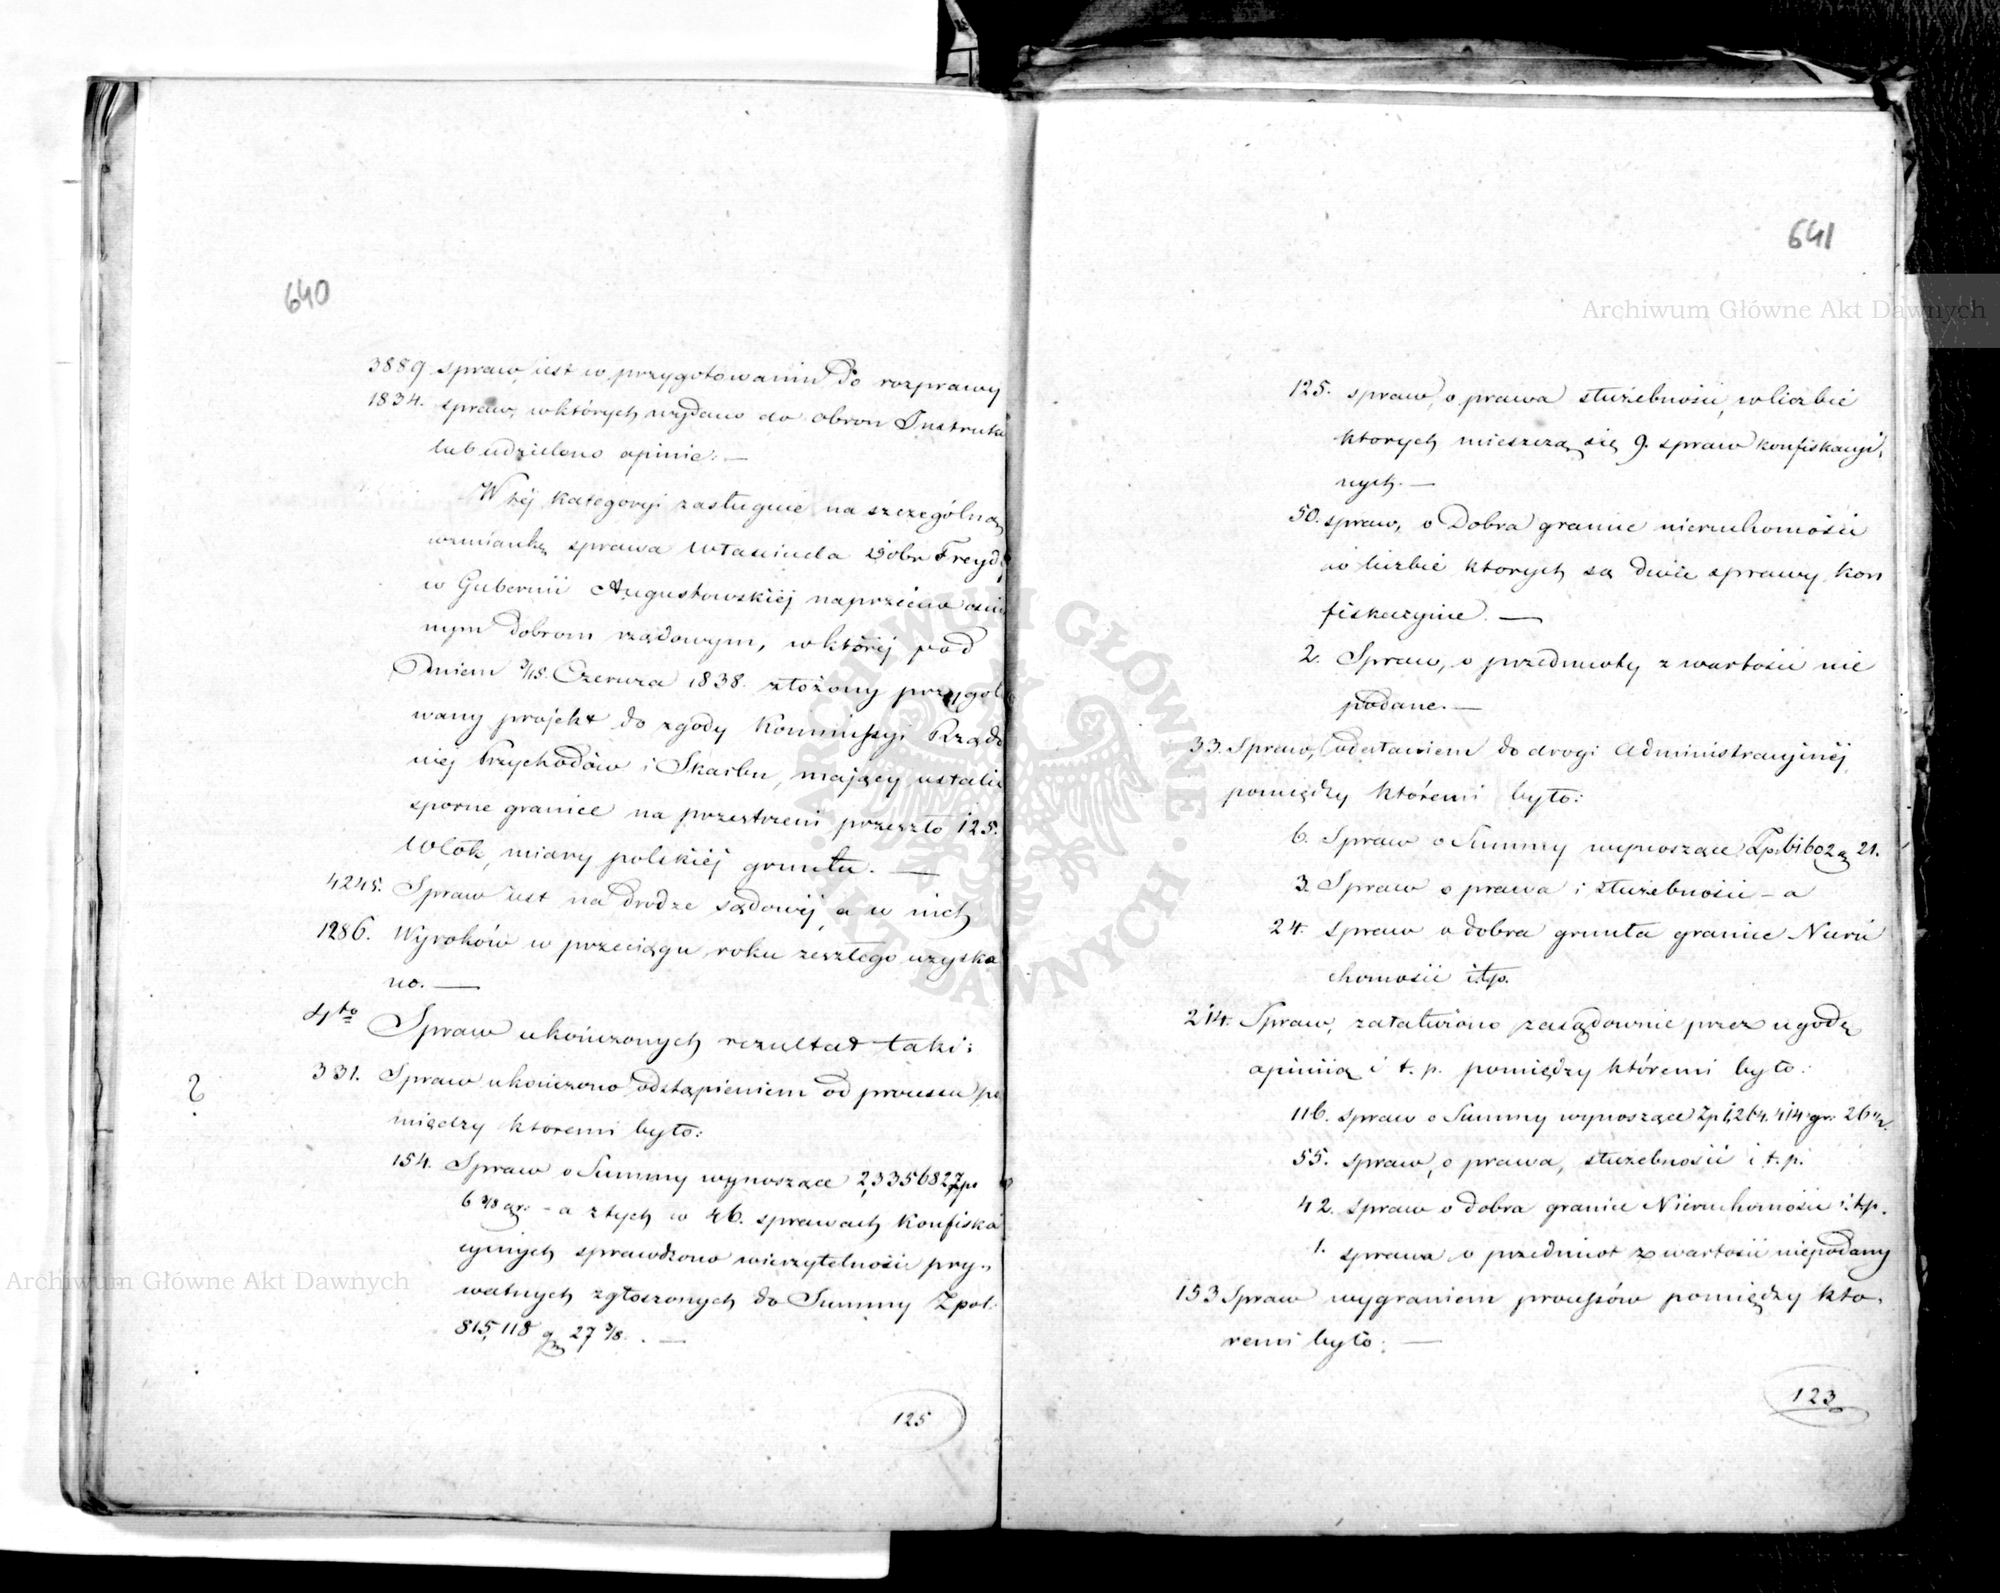 640
3889. spraw, jest w przygotowaniu do rozprawy
1834. spraw, w których wydano do obron Instrukc
lub udzielono opinie: —
W tej kategoryi zasługuie na szczególną
wzmiankę sprawa własciciela Dobr Freyd
w Gubernii Augustowskiéj naprzeciw
nym dobrom rządowym, w któréj pod
Dniem 3/15. Czerwca 1838. złożony przygoto
wany projekt do zgody Kommissyi Rządo
wéj Przychodów i Skarbu, mający ustalić
sporne granice na przestrzeni przeszło 125.
Włók, miary polskiéj gruntu. —
4245. Spraw jest na drodze sądowéj, a w nich
1286. Wyroków w przeciągu roku zeszłego uzyska
no. —
4to Spraw ukończonych rezultat taki:
331. Spraw ukończono odstąpieniem od processu po
między ktoremi było:
154. Spraw o Summy wynoszące 2,3356827 zp.
6 3/8 gr: – a z tych w 46. sprawach Konfiska
cyinych sprawdzono wierzytelności pry„
watnych zgłoszonych do Summy Zpol:
815,118 gr 27 3/8. . —
125
641
125. spraw, o prawa służebności, w liczbie
ktorych mieszczą się 9. spraw konfiskacyi„
nych. —
50. spraw, o Dobra granice nieruchomości
w liczbie ktorych są dwie sprawy Kon
fiskacyine. —
2. Spraw, o przedmioty z wartości nie
podane. —
33. Spraw, odesłaniem do drogi Administracyjnéj,
pomiędzy któremi było:
6. Spraw o Summy wynoszące Zp. 61602 gr 21.
3. Spraw o prawa i służebności – a
24. spraw o dobra grunta granice Nieru
chomości itp.
214. Spraw, załatwiono zasądownie przez ugodę
opinią i t. p. pomiędzy któremi było:
116. spraw o Summy wynoszące Zp 1,264.414 gr: 26 1/2.
55. spraw, o prawa, służebności i t. p.
42. spraw o dobra granice Nieruchomości i.t.p.
1. sprawa o przedmiot z wartości niepodany
153 Spraw wygraniem processów pomiędzy kto„
remi było: —
123
Archiwum Główne Akt Dawnych
Archiwum Główne Akt Dawnych
ARCHIWUM GŁÓWNE AKT DAWNYCH